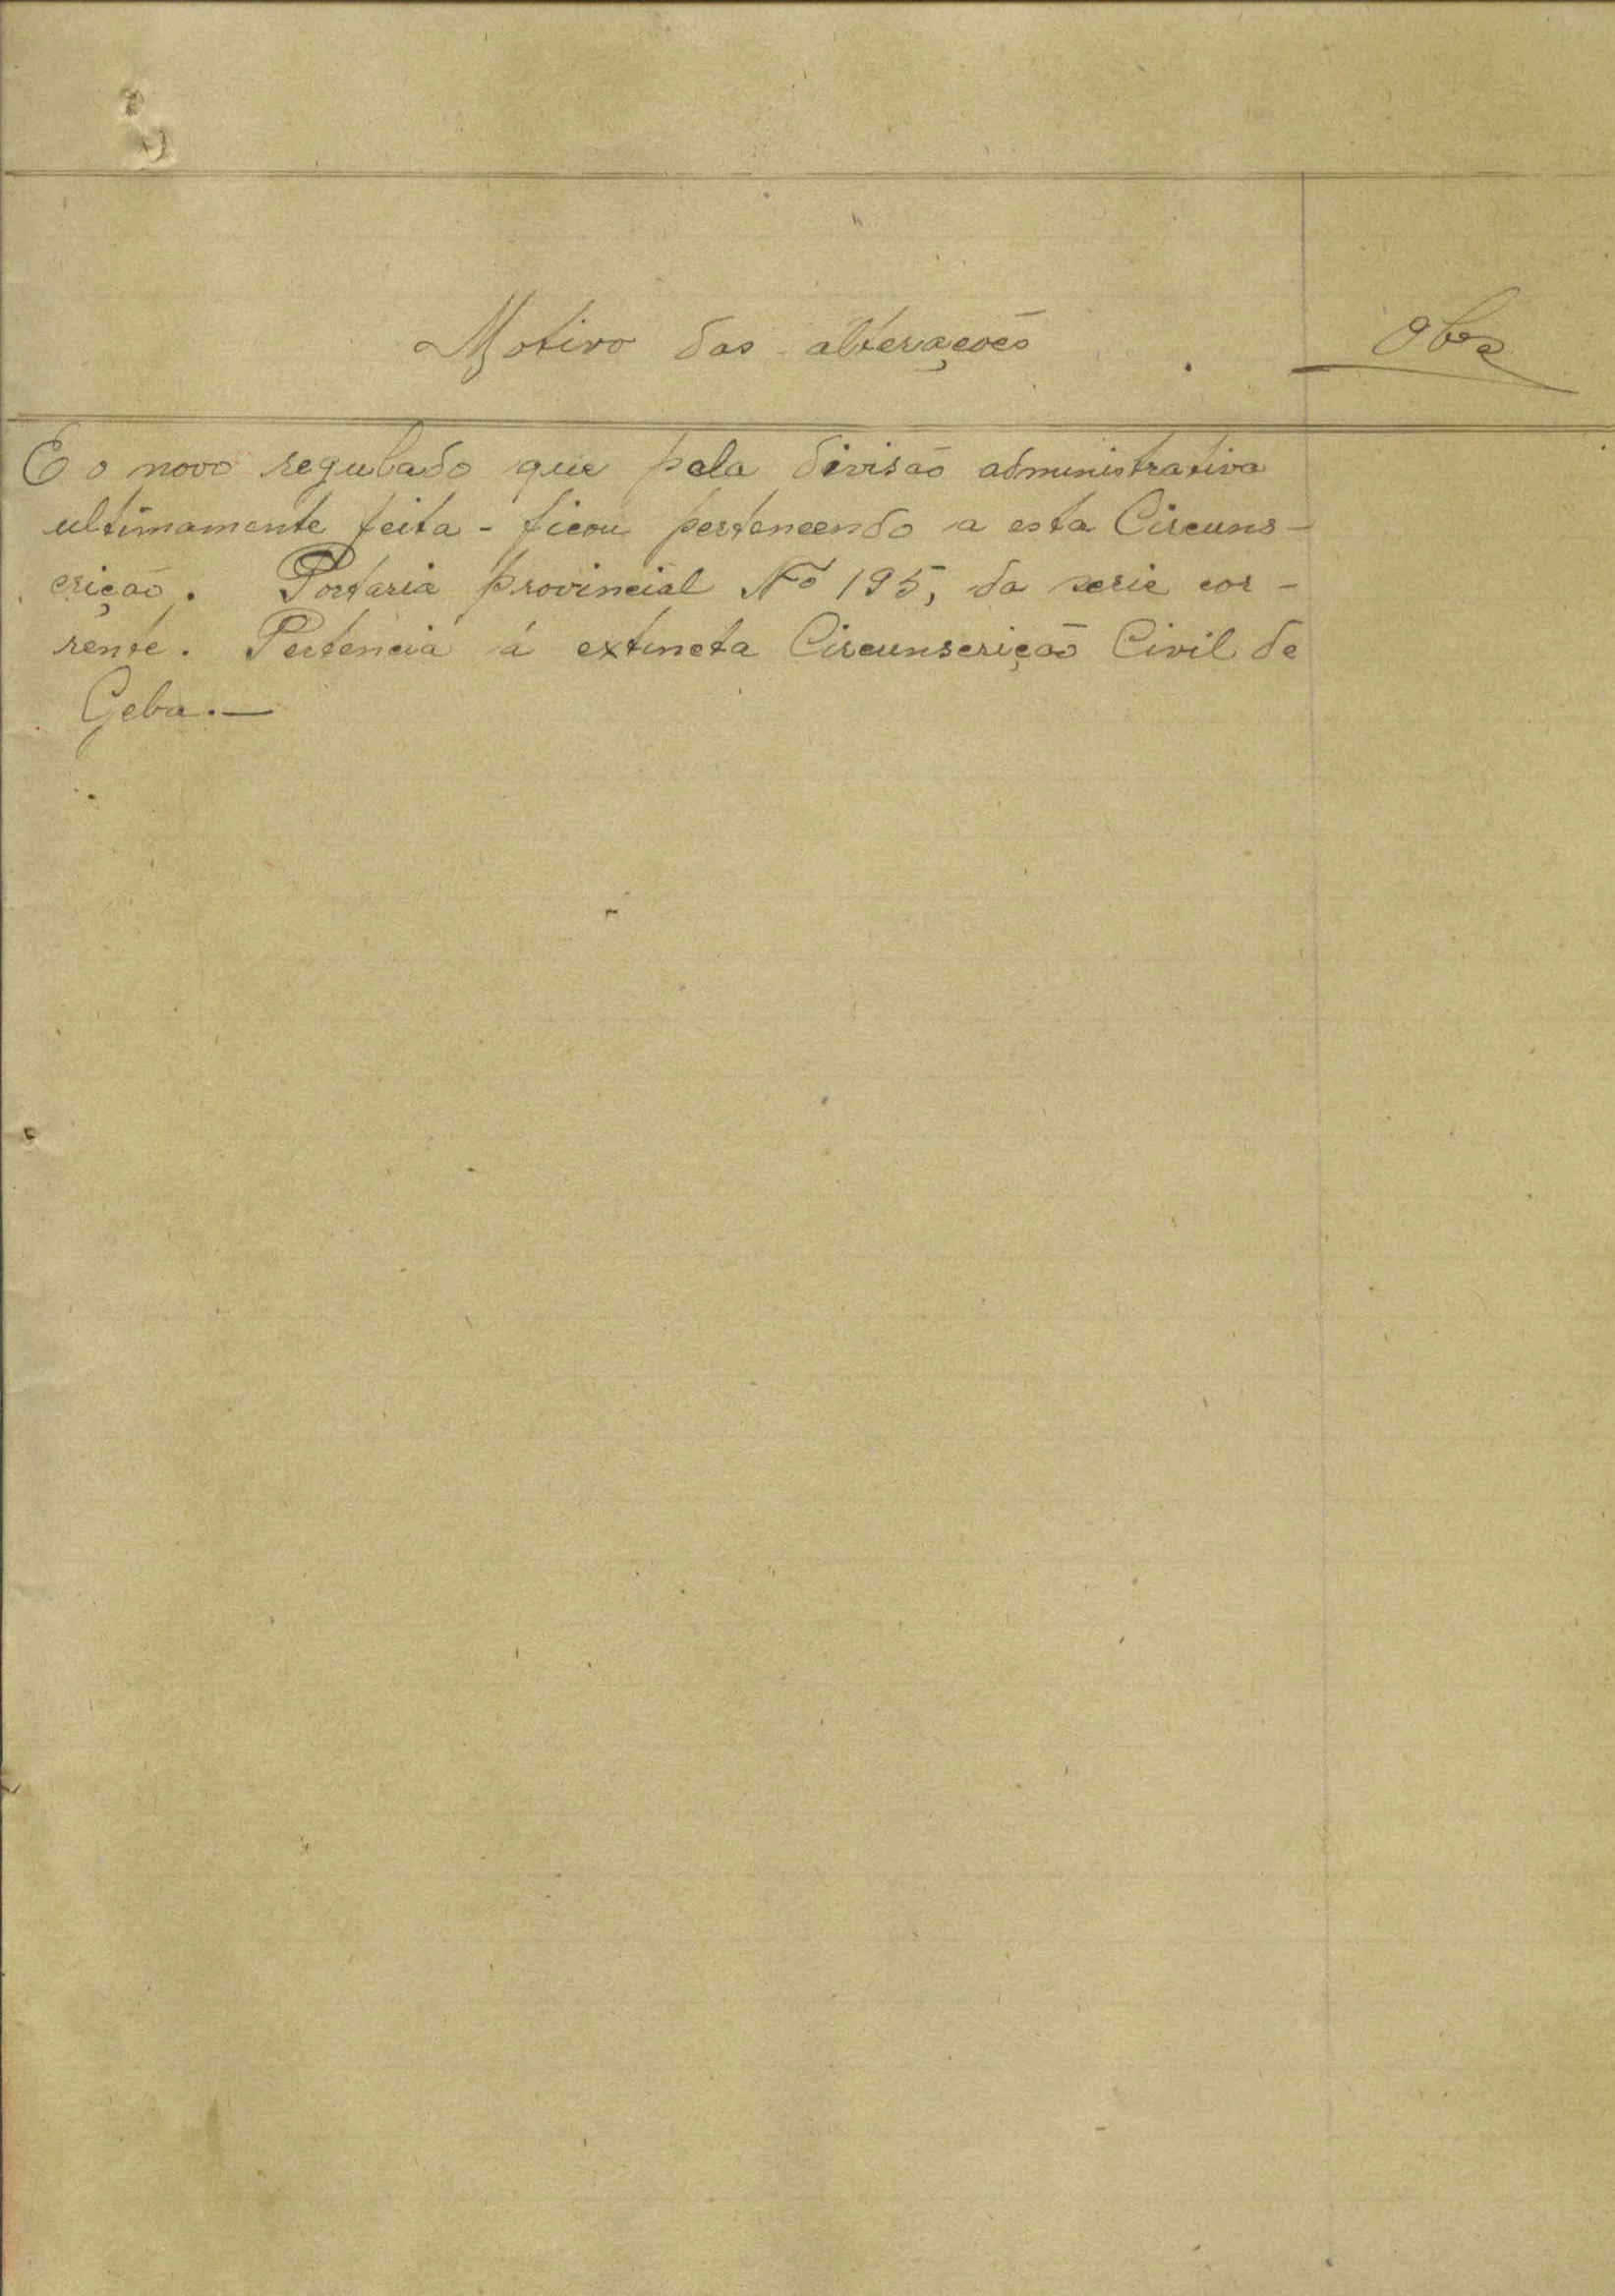 Motivo das alterações
Obs
E o novo regulado que pela divisão administrativa
ultimamente feita - ficou pertencendo a esta Circuns-
crição. Portaria provincial Nº 195, da serie cor-
rente. Pertencia á extincta Circunscrição Civil de
Geba.—